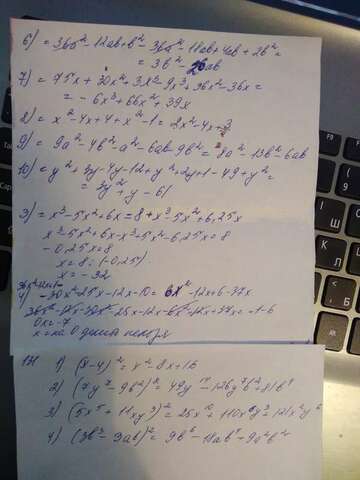 6) = 36a² - 12ab + b² - 36a² - 18ab + 4ab + 2b² =
= 3b² - 26ab
7) = 75x + 30x² + 3x³ - 9x³ + 36x² - 36x =
= - 6x³ + 66x² + 39x
8) = x² - 4x + 4 + x² - 1 = 2x² - 4x + 3
9) = 9a² - 4b² - a² - 6ab - 9b² = 8a² - 13b² - 6ab
10) = y² + 3y - 4y - 12 + y² + 2y + 1 - 49 + y² =
= 3y² + y - 61
3) = x³ - 5x² + 6x = 8 + x³ - 5x² + 6,25x
x³ - 5x² + 6x - x³ + 5x² - 6,25x = 8
- 0,25x = 8
x = 8 : (-0,25)
x = - 32
4) - 30x² - 25x - 12x - 10 = 6x² - 12x + 6 - 37x
0x = -7
x = на 0 делить нельзя
131 1) (x - 4)² = x² - 8x + 16
2) (7y⁷ - 9b²)² = 49y¹⁴ - 126y⁷b² + 81b⁴
3) (5x⁵ + 11xy³)² = 25x¹⁰ + 110x⁶y³ + 121x²y⁶
4) (3b³ - 3ab)² = 9b⁶ - 18ab⁴ - 9a²b²